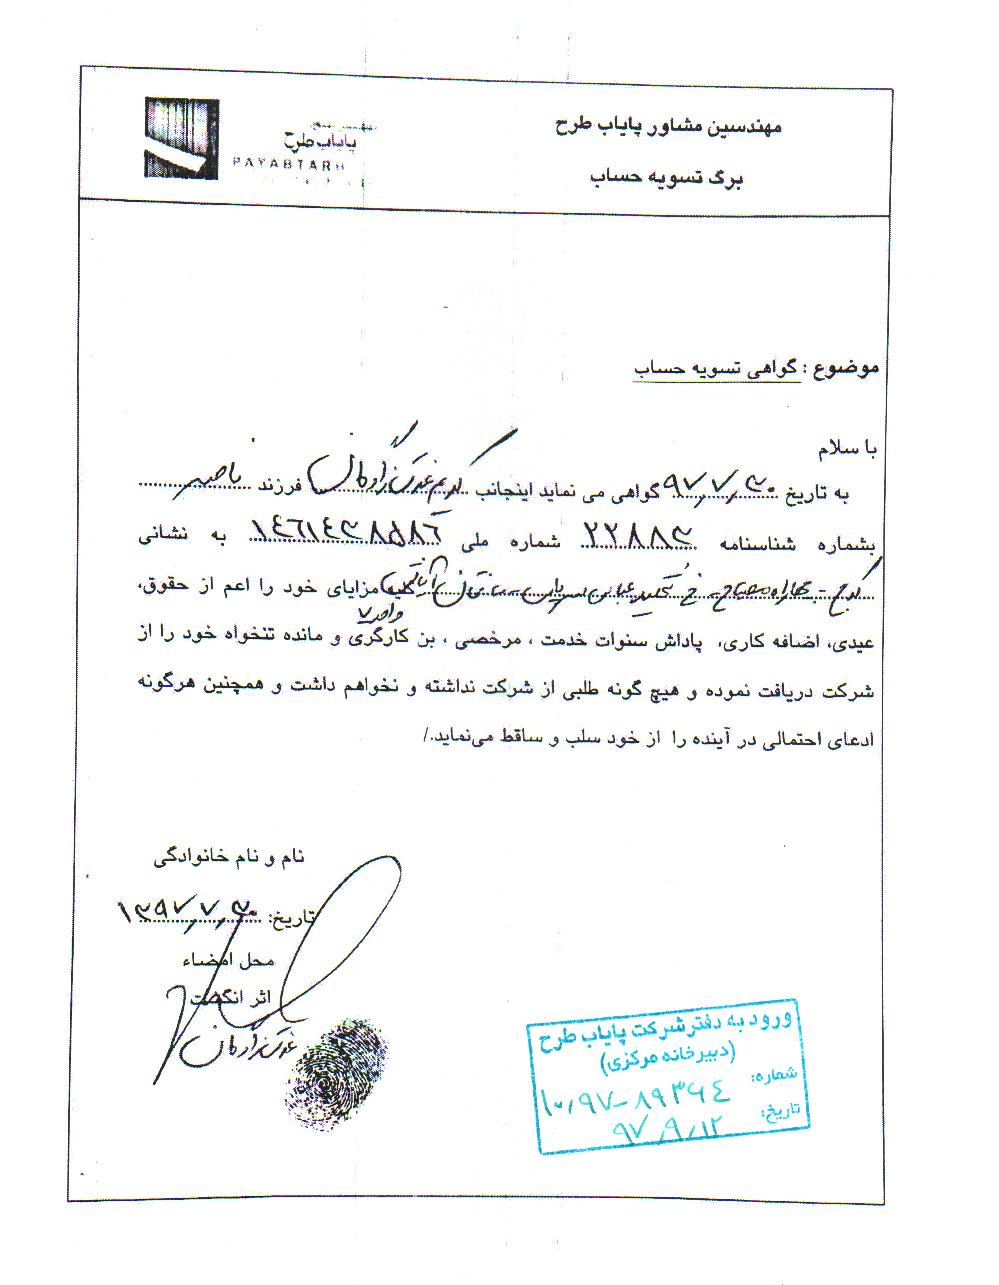 مهندسین مشاور پایاب طرح
پایاب طرح
PAYABTARH
برگ تسویه حساب
موضوع : گواهی تسویه حساب
با سلام
به تاریخ ۹۷,۷,۳۰ گواهی می نماید اینجانب فرزند ناصر
بشماره شناسنامه ۲۲۸۸۳ شماره ملی ۱۴۶۱۴۳۸۵۸۶ به نشانی
کرج - چهارراه مصباح - کلیه مزایای خود را اعم از حقوق،
واحد ۷
عیدی، اضافه کاری، پاداش سنوات خدمت ، مرخصی ، بن کارگری و مانده تنخواه خود را از
شرکت دریافت نموده و هیچ گونه طلبی از شرکت نداشته و نخواهم داشت و همچنین هرگونه
ادعای احتمالی در آینده را از خود سلب و ساقط می‌نماید./
نام و نام خانوادگی
تاریخ: ۱۳۹۷,۷,۳۰
محل امضاء
اثر انگشت
ورود به دفتر شرکت پایاب طرح
(دبیرخانه مرکزی)
شماره: ۱۰,۹۷-۸۹۳۶۴
تاریخ: ۹۷,۹,۱۲